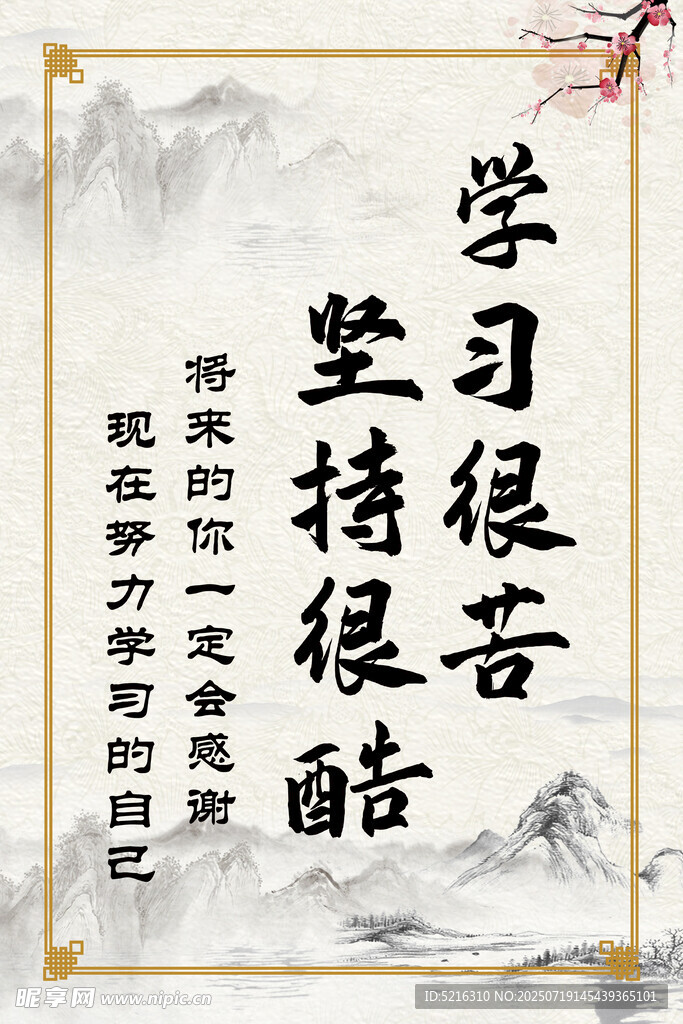 学习很苦
坚持很酷
将来的你一定会感谢
现在努力学习的自己
昵享网 www.nipic.cn
ID:5216310 NO:20250719145439365101